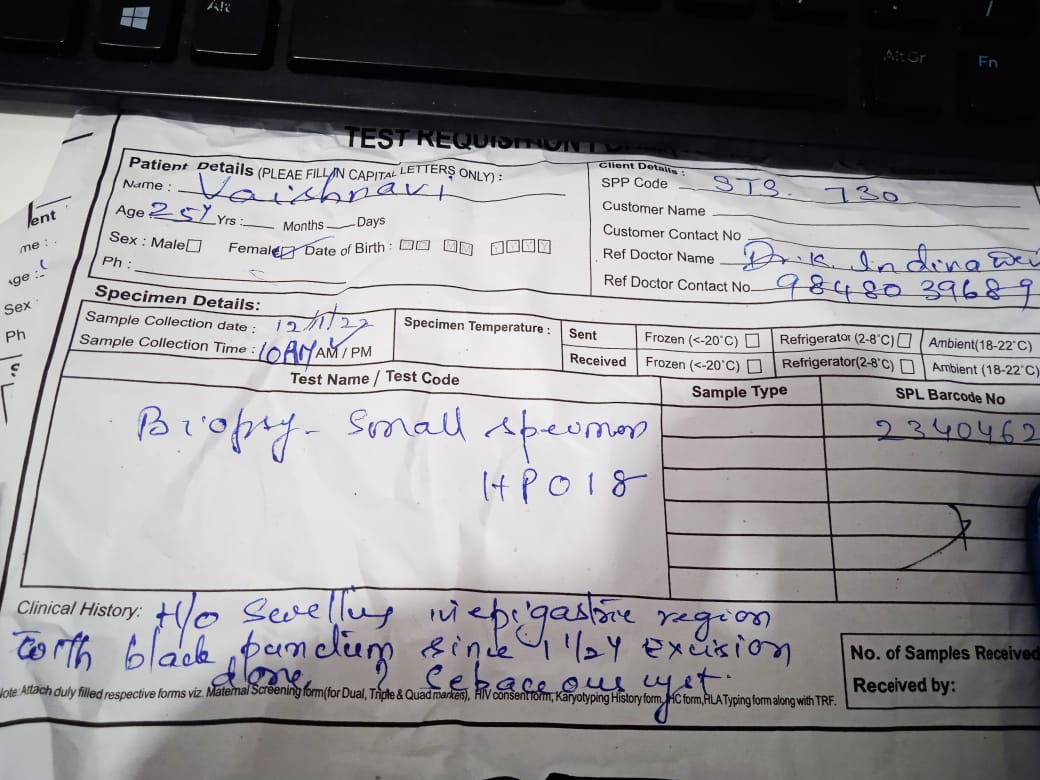 Alt
AltGr
Fn
TEST REQUISITION
Patient Details (PLEAE FILL IN CAPITAL LETTERS ONLY) :
Name : Vaishnavi
Age 25Y Yrs : Months Days
Sex : Male Female Date of Birth : DD MM YYYY
Ph :
Client Details :
SPP Code STS. 730
Customer Name
Customer Contact No
Ref Doctor Name Dr. K. Indira
Ref Doctor Contact No 9848039689
Specimen Details:
Sample Collection date : 12/11/22
Sample Collection Time : 10AM AM / PM
Specimen Temperature :
Sent Frozen (<-20°C) Refrigerator (2-8°C) Ambient(18-22°C)
Received Frozen (<-20°C) Refrigerator(2-8°C) Ambient (18-22°C)
Test Name / Test Code Sample Type SPL Barcode No
Biopsy - Small specimen 2340462
HP018
Clinical History: H/o Swelling in epigastric region
with black punctum since 1 1/2Y Excision
done, ? Sebaceous cyst.
Note: Attach duly filled respective forms viz. Maternal Screening form(for Dual, Triple & Quad markers), HIV consent form, Karyotyping History form, IHC form, HLA Typing form along with TRF.
No. of Samples Received
Received by:
ent
me :
ge :
Sex
Ph
S